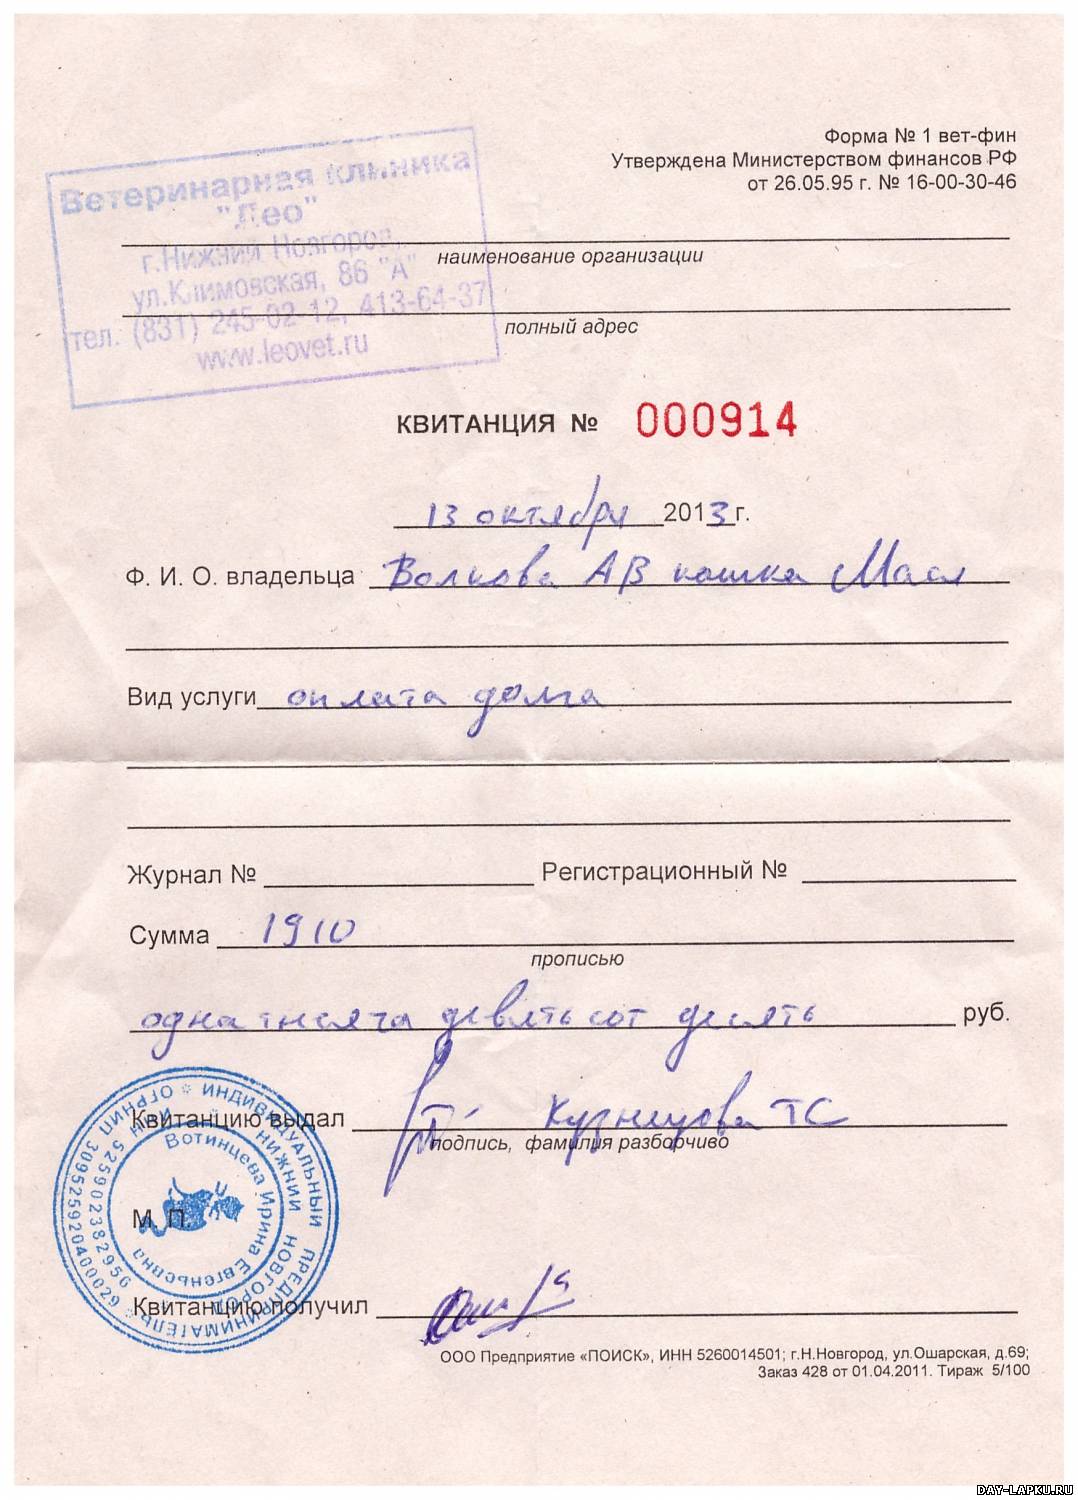 Форма № 1 вет-фин
Утверждена Министерством финансов РФ
от 26.05.95 г. № 16-00-30-46
Ветеринарная клиника
"Лео"
г.Нижний Новгород,
ул.Климовская, 86 "А"
тел. (831) 245-02-12, 413-64-37
www.leovet.ru
наименование организации
полный адрес
КВИТАНЦИЯ № 000914
13 октября 2013 г.
Ф. И. О. владельца Волкова АВ кошка Мася
Вид услуги оплата долга
Журнал № Регистрационный №
Сумма 1910
прописью
одна тысяча девятьсот десять руб.
Квитанцию выдал Кузнецова ТС
подпись, фамилия разборчиво
М. П.
Квитанцию получил
ИНДИВИДУАЛЬНЫЙ ПРЕДПРИНИМАТЕЛЬ * ОГРНИП 309525920400029 *
НИЖНИЙ НОВГОРОД * ИНН 525902382956
Вотинцева Ирина Евгеньевна
ООО Предприятие «ПОИСК», ИНН 5260014501; г.Н.Новгород, ул.Ошарская, д.69;
Заказ 428 от 01.04.2011. Тираж 5/100
DAY-LAPKU.RU